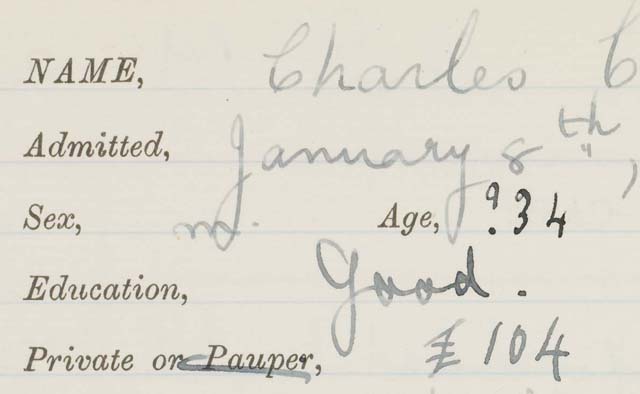 NAME, Charles C
Admitted, January 8th,
Sex, m. Age, ?34
Education, Good.
Private or Pauper, £104